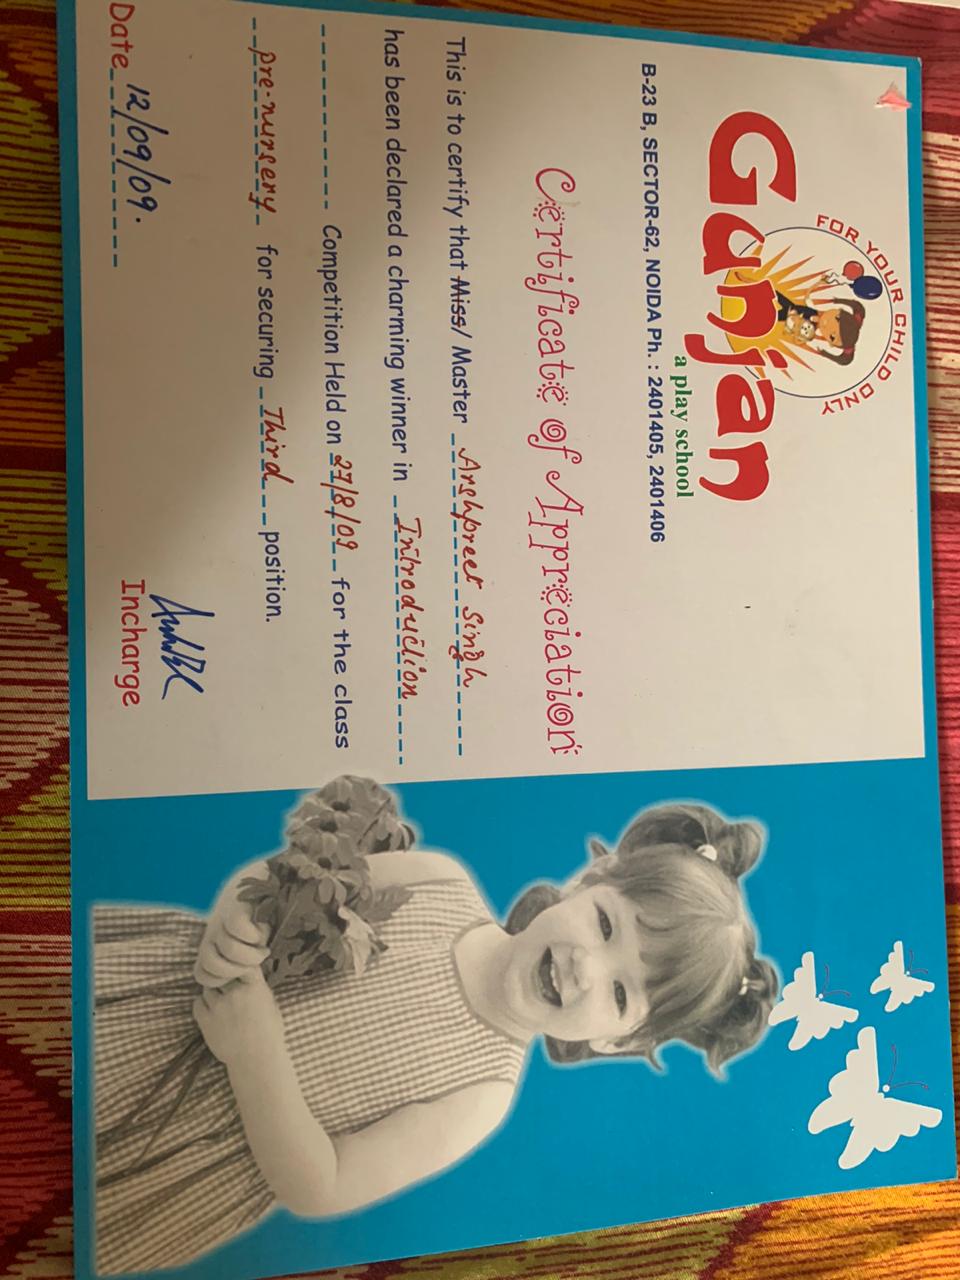 FOR YOUR CHILD ONLY
Gunjan
a play school
B-23 B, SECTOR-62, NOIDA Ph. : 2401405, 2401406
Certificate of Appreciation
This is to certify that Miss/ Master Arshpreet Singh
has been declared a charming winner in Introduction
Competition Held on 27/8/09 for the class
pre-nursery for securing Third position.
Date 12/09/09.
Incharge